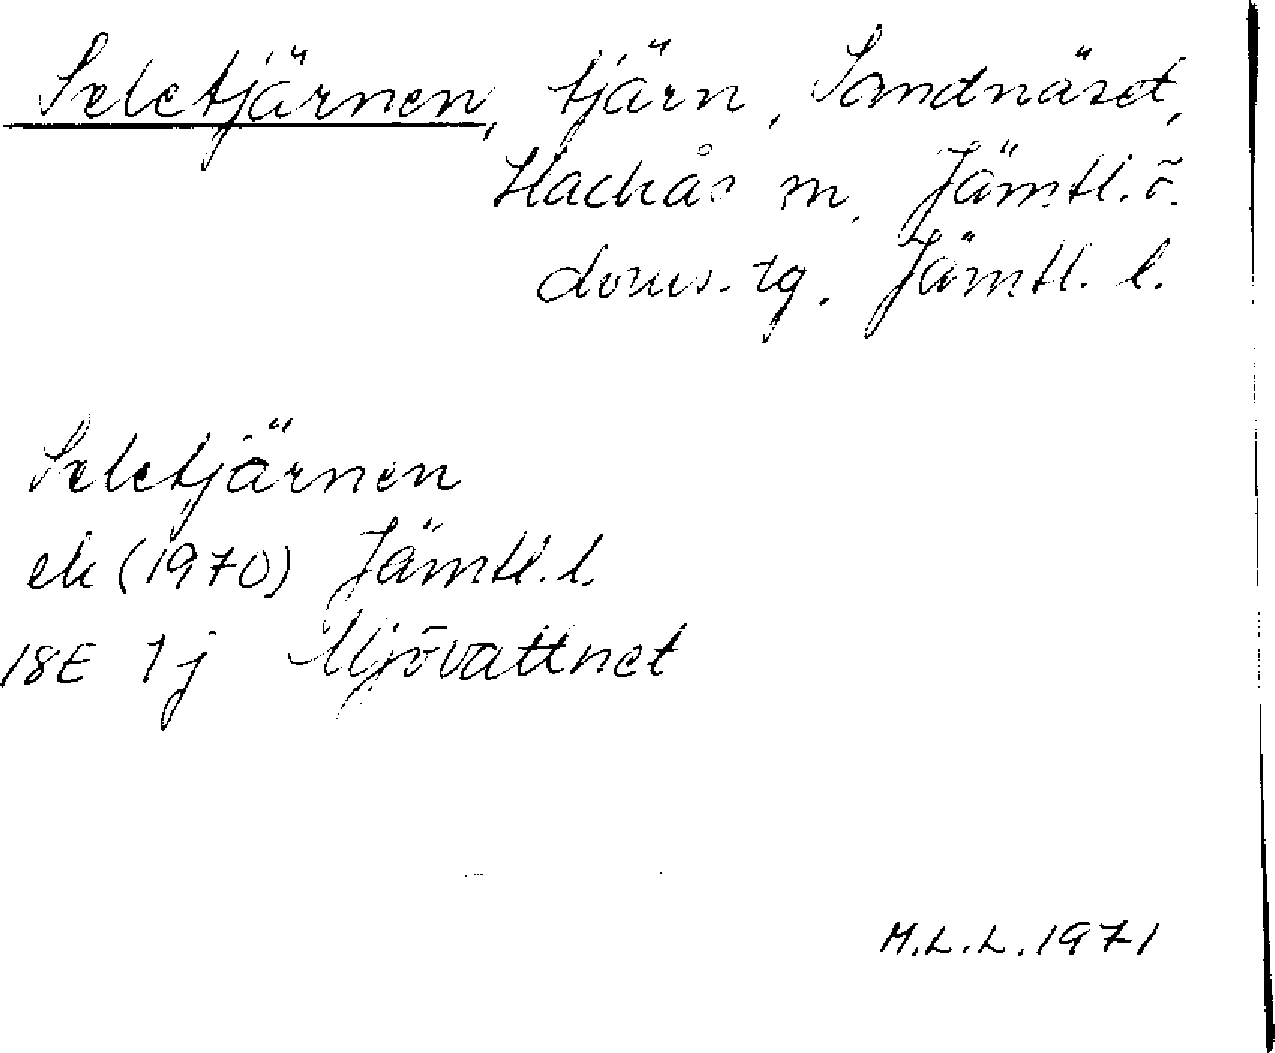 Seletjärnen, tjärn, Sandnäset,
Hackås sn, Jämtl. ö.
doms. tg. Jämtl. l.
Seletjärnen
ek (1970) Jämtl. l.
18E 1j Mjövattnet
M.L.L. 1971